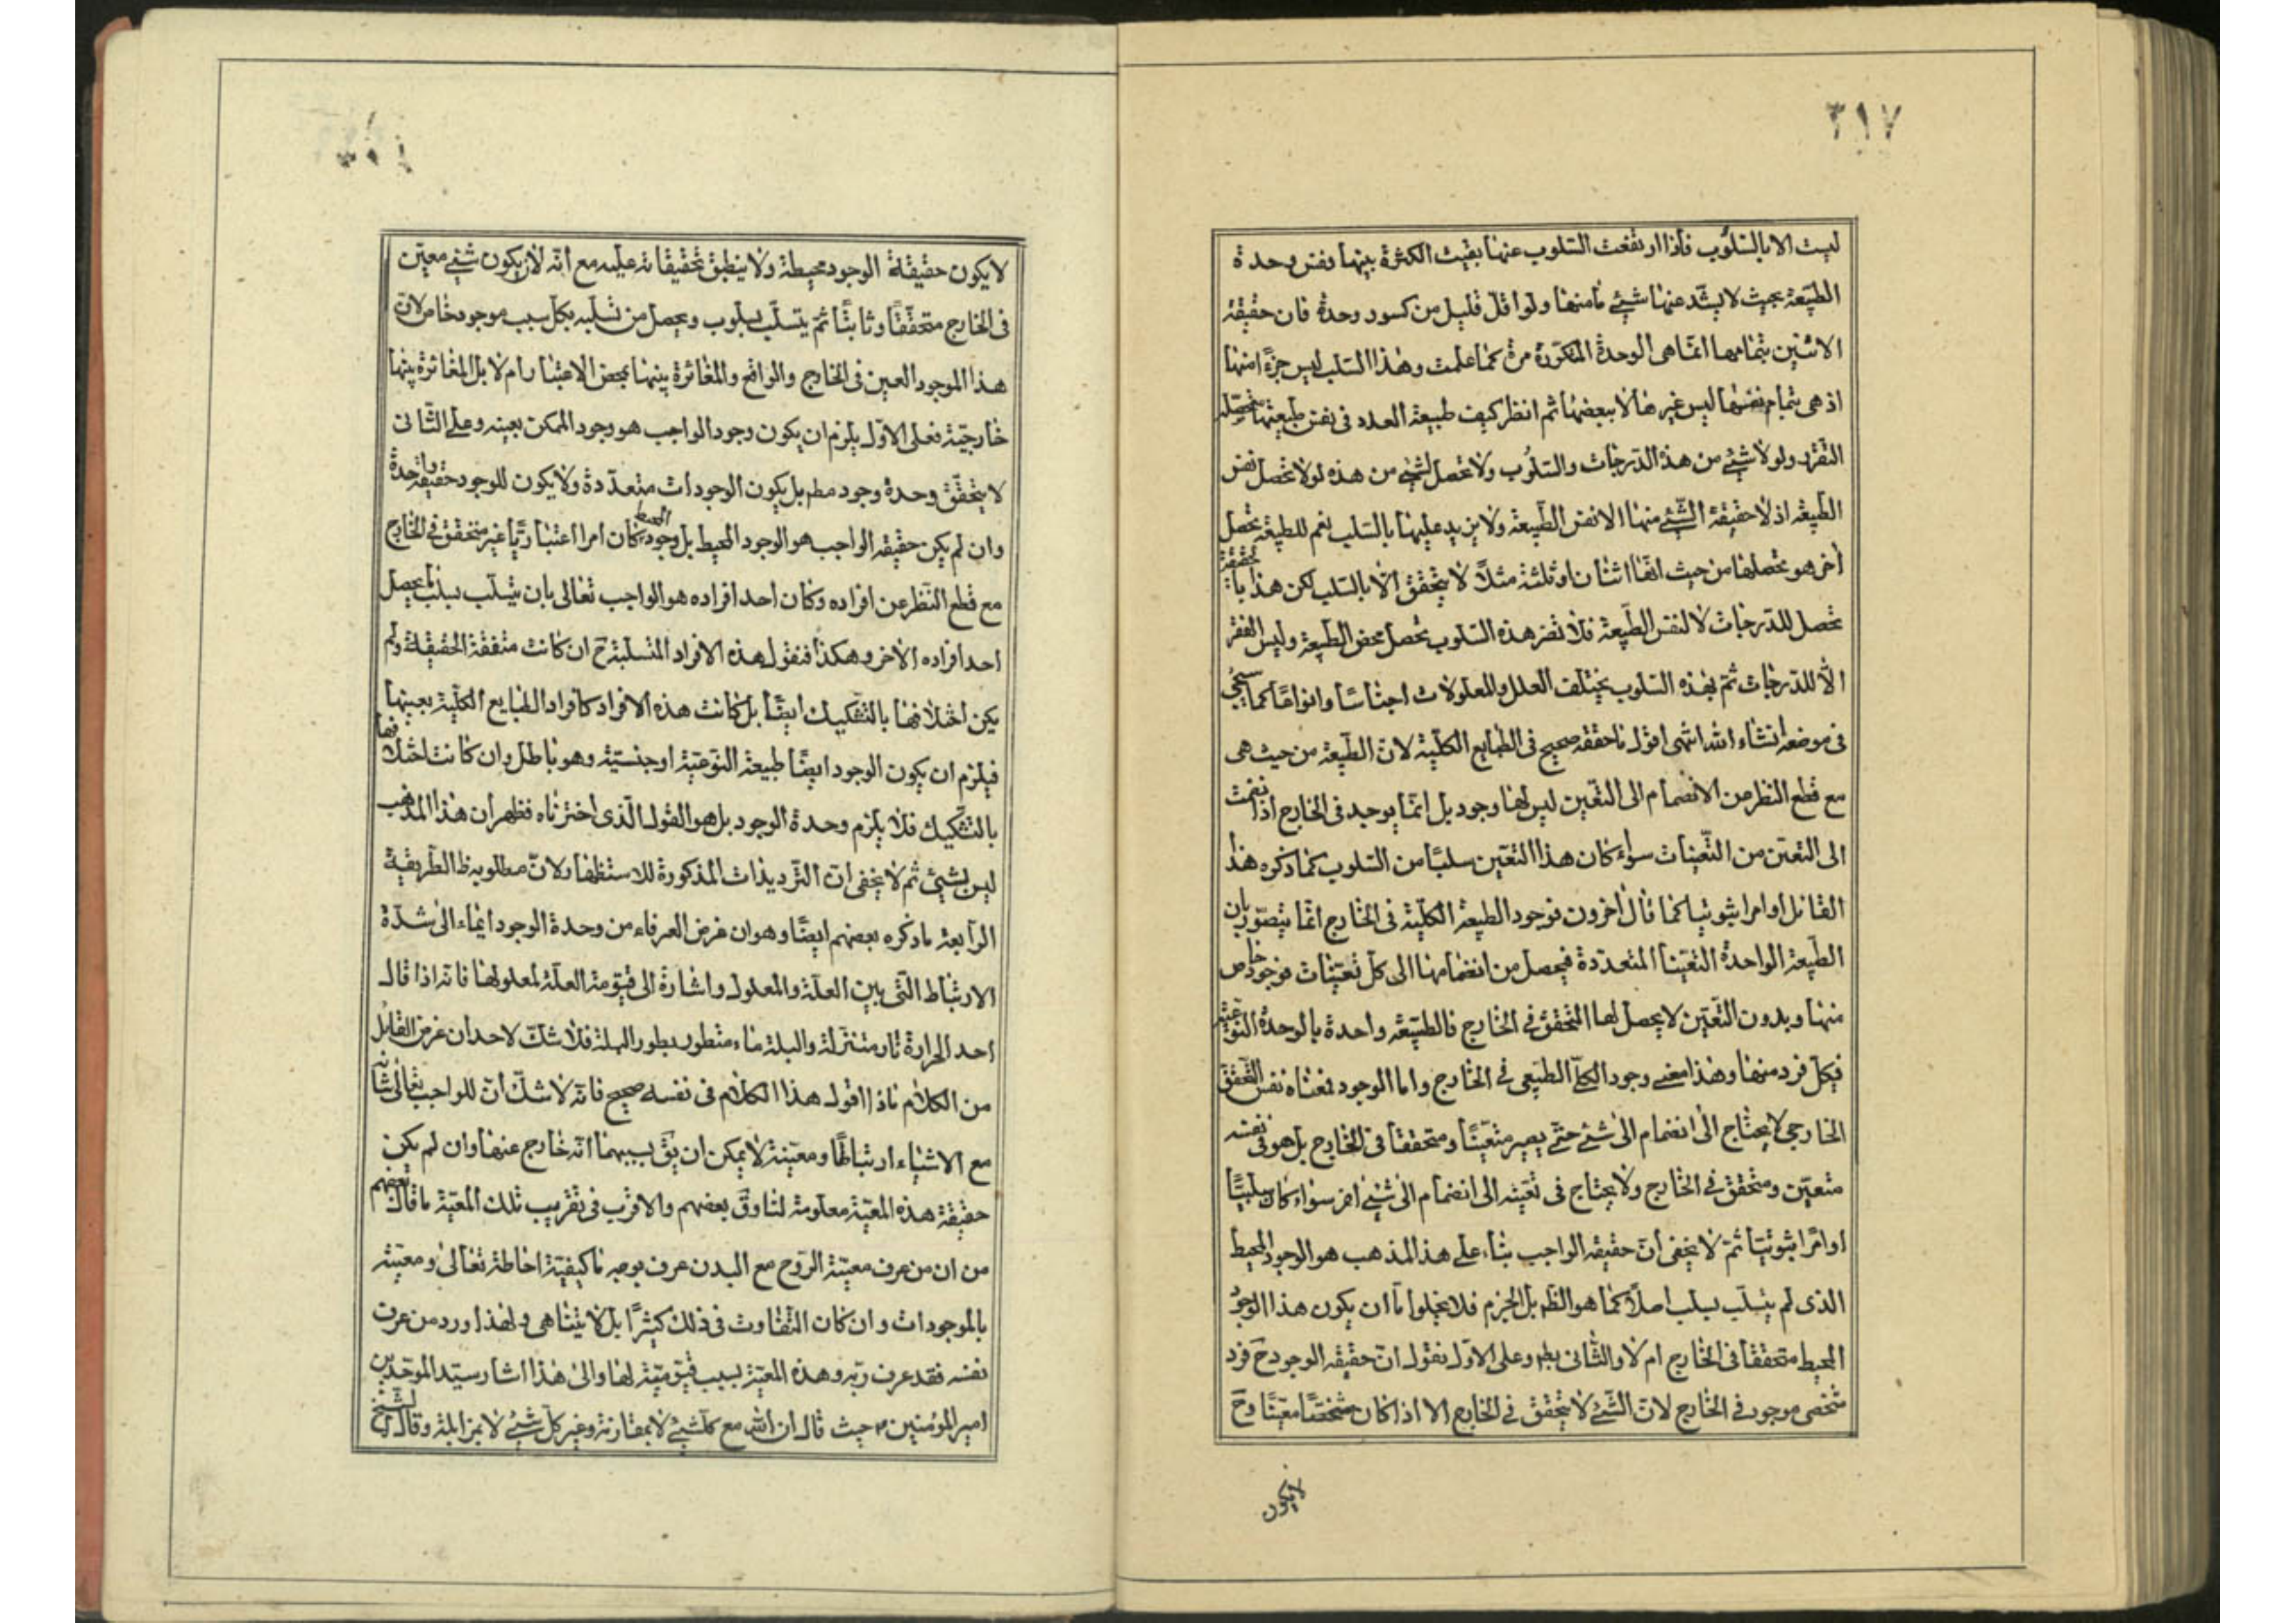 ٣١٧
ليست الا بالسلوب فاذا ارتفعت السلوب عنها بقيت الكثرة بينها ونفس وحدة
الطبيعة بحيث لا يشذ عنها شيئ مامنها ولو اقل قليل من كسور وحدة فان حقيقة
الاثنين بتمامها انما هى الوحدة المتكررة مرة كما علمت وهذا السلب ليس جزءا منها
اذ هى بتمام نفسها ليس غيرها لا ببعضها ثم انظر كيف طبيعة العدد فى نفس طبيعتها متحصلة
التفرد ولو لا شيئ من هذه الدرجات والسلوب ولا تحصل لشيئ من هذه لولا تحصل نفس
الطبيعة اذ لا حقيقة الشيئ منها الا نفس الطبيعة ولا يزيد عليها بالسلب نعم للطبيعة تحصل
آخر هو تحصلها من حيث انها اثنان او ثلثة مثلا لا يتحقق الا بالسلب لكن هذا بالحقيقة
تحصل للدرجات لا لنفس الطبيعة فلا تضر هذه السلوب تحصل محض الطبيعة وليس الفقر
الا للدرجات ثم بهذه السلوب يختلف العلل والمعلولات اجناسا وانواعا كما سيجئ
فى موضعه انشاء الله انتهى اقول ما حققه صحيح فى الطبايع الكلية لان الطبيعة من حيث هى
مع قطع النظر من الانضمام الى التعين ليس لها وجود بل انما يوجد فى الخارج اذا نضمت
الى التعين من التعينات سواء كان هذا التعين سلبا من السلوب كما ذكره هذا
القائل او امرا ثبوتيا كما قال آخرون فوجود الطبيعة الكلية فى الخارج انما يتصور بان
الطبيعة الواحدة التعينا المتعددة فيحصل من انضمامها الى كل تعينات موجود خاص
منها وبدون التعين لا يحصل لها التحقق فى الخارج فالطبيعة واحدة بالوحدة النوعية
فيكل فرد منها وهذا معنى وجود الكلى الطبيعى فى الخارج واما الوجود فمعناه نفس التحقق
الخارجى لا يحتاج الى انضمام الى شيئ حتى يصير متعينا ومتحققا فى الخارج بل هو فى نفسه
متعين ومتحقق فى الخارج ولا يحتاج فى تعينه الى انضمام الى شيئ آخر سواء كان سلبيا
او امرا ثبوتيا ثم لا يخفى ان حقيقة الواجب بناء على هذا المذهب هو الوجود المحيط
الذى لم يتسلب بسلب اصلا كما هو الظم بل الجزم فلا يخلوا ما ان يكون هذا الوجود
المحيط متحققا فى الخارج ام لا والثانى بط وعلى الاول نقول ان حقيقة الوجود ح فرد
شخصى موجود فى الخارج لان الشيئ لا يتحقق فى الخارج الا اذا كان مشخصا معينا وح
لايكون
لا يكون حقيقة الوجود محيطة ولا ينطبق تحقيقاته عليه مع انه لان يكون شيئ معين
فى الخارج متحققا وثابتا ثم يتسلب بسلوب ويحصل من تسلبه بكل سبب موجود خاص لان
هذا الموجود العين فى الخارج والواقع والمغائرة بينها بمحض الاعتبار ام لا بل المغائرة بينها
خارجية فعلى الاول يلزم ان يكون وجود الواجب هو وجود الممكن بعينه وعلى الثانى
لا يتحقق وحدة وجود مط بل يكون الوجودات متعددة ولا يكون للوجود حقيقة واحدة
وان لم يكن حقيقة الواجب هو الوجود المحيط بل وجود المحيط كان امرا اعتباريا غير متحقق فى الخارج
مع قطع النظر عن افراده وكان احد افراده هو الواجب تعالى بان يتسلب بسلب ما يحصل
احد افراده الآخر وهكذا فنقول هذه الافراد المتسلبة ح ان كانت متفقة الحقيقة ولم
يكن اختلافها بالتشكيك ايضا بل كانت هذه الافراد كافراد الطبايع الكلية بعينها
فيلزم ان يكون الوجود ايضا طبيعة النوعية او جنسية وهو باطل وان كانت اختلافها
بالتشكيك فلا يلزم وحدة الوجود بل هو القول الذى اخترناه فظهر ان هذا المذهب
ليس بشيئ ثم لا يخفى ان الترديدات المذكورة للاستظهار ولان مطلوبه ظ الطريقة
الرابعة ما ذكره بعضهم ايضا وهو ان غرض العرفاء من وحدة الوجود ايماء الى شدة
الارتباط التى بين العلة والمعلول واشارة الى قيومية العلة لمعلولها فانه اذا قال
احد الحرارة نار متنزلة والبلة ماء متطور بطور البلة فلا شك لاحد ان غرض القائل
من الكلام ماذا اقول هذا الكلام فى نفسه صحيح فانه لا شك ان للواجب تعالى شانه
مع الاشياء ارتباطا ومعية لا يمكن ان يق بسببهما انه خارج عنها وان لم يكن
حقيقة هذه المعية معلومة لنا وق بعضهم والاقرب فى تقريب تلك المعية ما قال بعضهم
من ان من عرف معية الروح مع البدن عرف بوجه ما كيفية احاطة تعالى ومعيته
بالموجودات وان كان التفاوت فى ذلك كثيرا بل لا يتناهى ولهذا ورد من عرف
نفسه فقد عرف ربه وهذه المعية بسبب قيوميته لها والى هذا اشار سيد الموحدين
امير المؤمنين حيث قال ان الله مع كل شيئ لا بمقارنة وغير كل شيئ لا بمزايلة وقال الشيخ